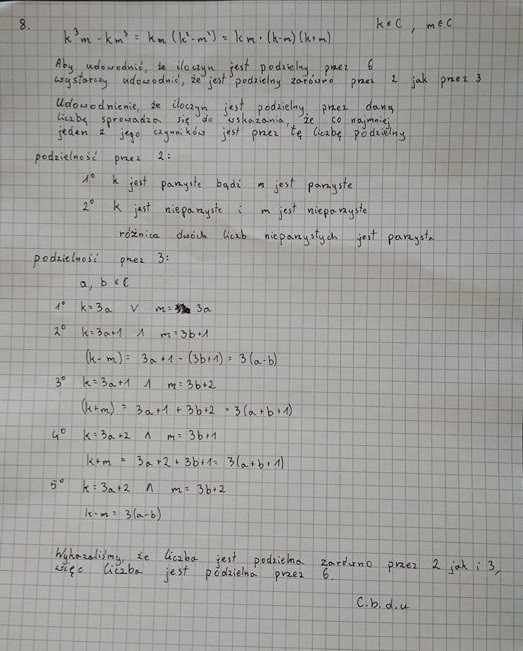 8.
k ∈ C , m ∈ C
k³m - km³ = km (k² - m²) = km · (k-m)(k+m)
Aby udowodnić, że iloczyn jest podzielny przez 6
wystarczy udowodnić, że jest podzielny zarówno przez 2 jak przez 3
Udowodnienie, że iloczyn jest podzielny przez daną
liczbę sprowadza się do wskazania, że co najmniej
jeden z jego czynników jest przez tę liczbę podzielny
podzielność przez 2:
1° k jest parzyste bądź m jest parzyste
2° k jest nieparzyste i m jest nieparzyste
różnica dwóch liczb nieparzystych jest parzysta
podzielność przez 3:
a, b ∈ C
1° k=3a ∨ m= 3a
2° k=3a+1 ∧ m=3b+1
(k-m) = 3a+1 - (3b+1) = 3(a-b)
3° k=3a+1 ∧ m=3b+2
(k+m) = 3a+1 + 3b+2 = 3(a+b+1)
4° k=3a+2 ∧ m=3b+1
k+m = 3a+2 + 3b+1 = 3(a+b+1)
5° k=3a+2 ∧ m=3b+2
k-m = 3(a-b)
Wykazaliśmy, że liczba jest podzielna zarówno przez 2 jak i 3,
więc liczba jest podzielna przez 6.
C.b.d.u